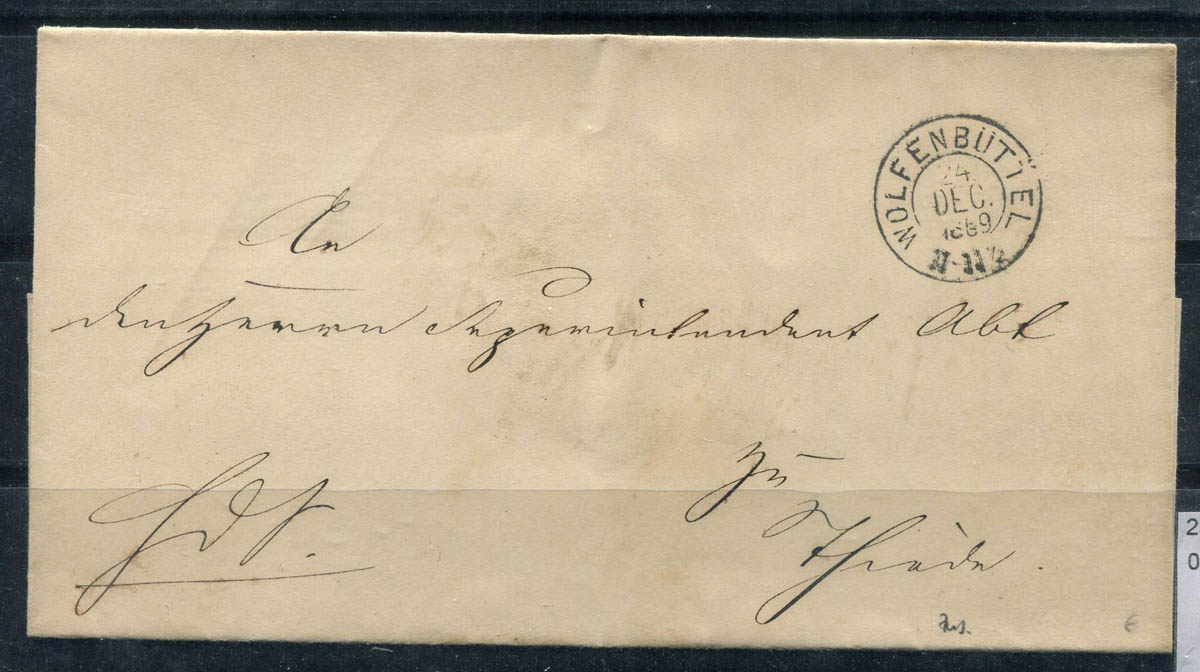 WOLFENBÜTTEL
24
DEC.
1869
11-11½
An
den Herrn Superintendent Abt
zu
Thiede.
HDS.
2
0
€